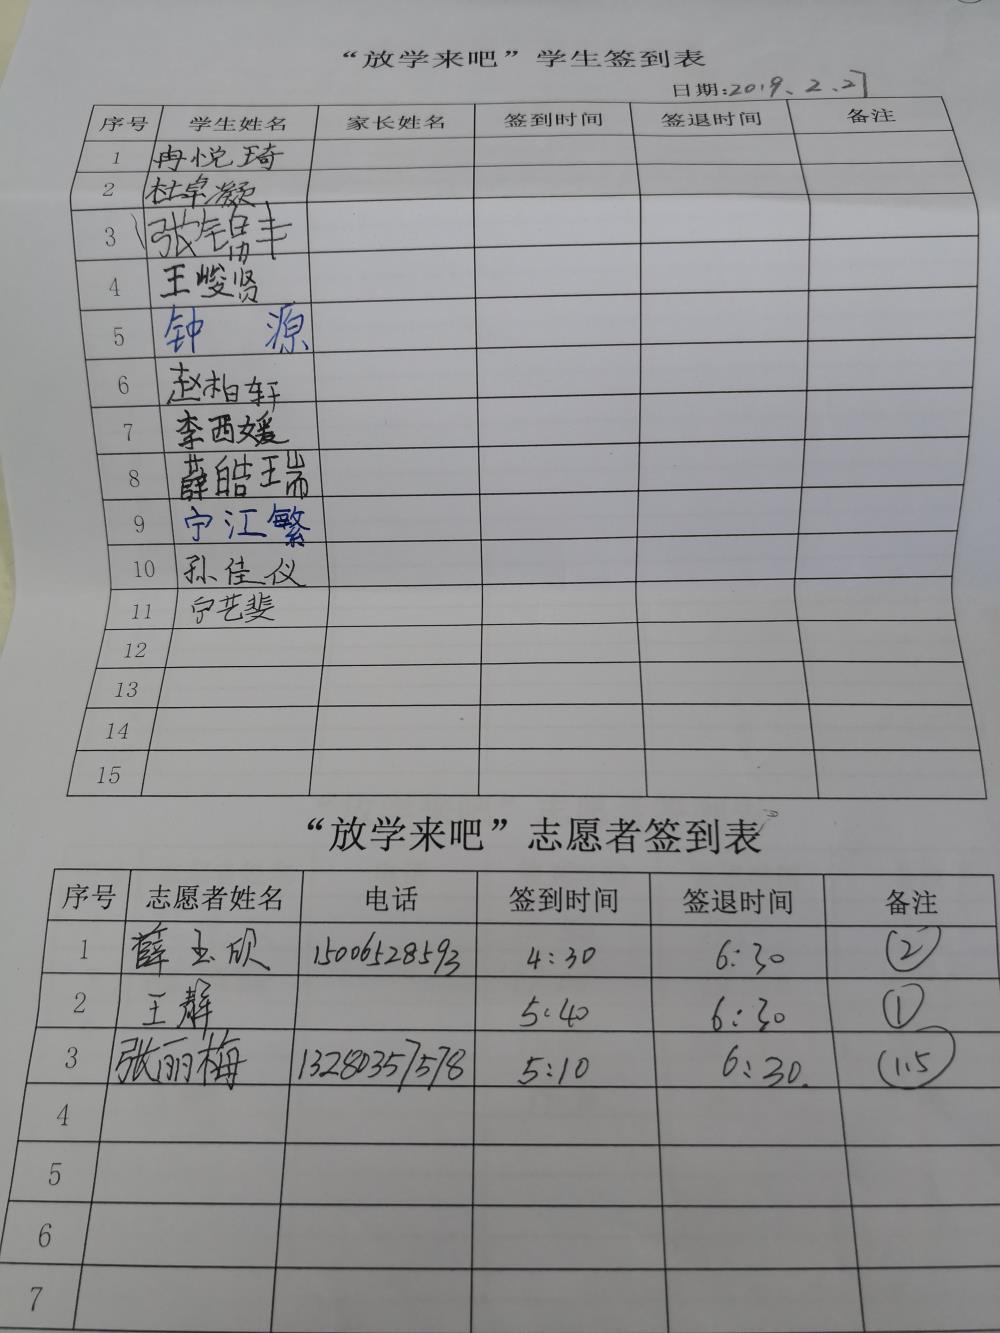 “放学来吧”学生签到表
日期:2019.2.27
序号 学生姓名 家长姓名 签到时间 签退时间 备注
1 冉悦琦
2 杜卓凝
3 张
4 王峻贤
5 钟源
6 赵柏轩
7 李西媛
8 薛皓瑞
9 宁江繁
10 孙佳仪
11 宁艺斐
12
13
14
15
“放学来吧”志愿者签到表
序号 志愿者姓名 电话 签到时间 签退时间 备注
1 薛玉欣 15006528593 4:30 6:30 ②
2 王静 5:40 6:30 ①
3 张丽梅 13280357578 5:10 6:30. 1.5
4
5
6
7